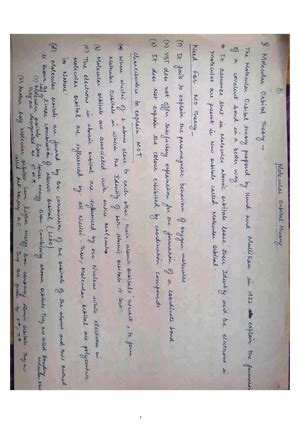 Molecular orbital theory
Molecular Orbital Theory -
The Molecular Orbital theory proposed by Hund and Mulliken in 1932 explain the formation
of a covalent bond in a better way.
It assumes that in Molecules atomic orbitals loose their Identity and the electrons in
Molecules are present in new orbitals called Molecular orbital.
Need For MO Theory -
(1) It fails to explain the paramagnetic behaviour of oxygen molecules
VBT does not offer satisfactory explanation for the formation of a coordinate bond
It does not explain the colour exhibited by coordination compounds
Characteristics to explain MOT
(a) When nuclei of 2 atoms close to each other, their atomic orbitals interact, to form
Molecular orbitals in which the Identity of both atomic orbitals is lost
(b) Molecular orbitals are associated with entire molecules.
(c) The electrons in atomic orbital are influenced by one Nucleus while electrons in
Molecular orbital are influenced by all Nuclei. Thus, molecular orbital are polycentric
In Nature
(d) Molecular orbitals are formed by the combination of the orbitals of the atoms and this
is known by linear combination of atomic orbital (LCAO)